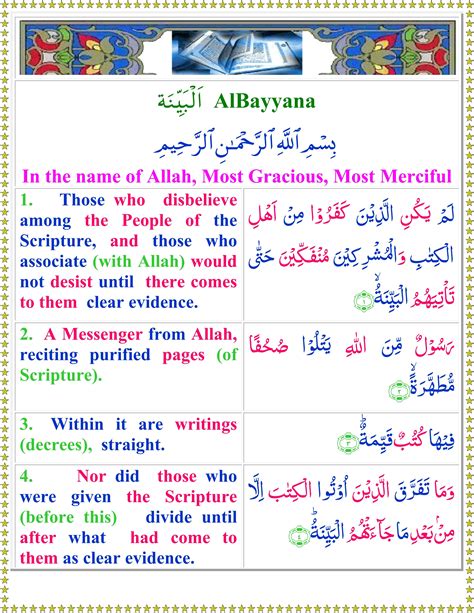 اَلْبَيِّنَة AlBayyana
بِسْمِ اللَّهِ الرَّحْمَٰنِ الرَّحِيمِ
In the name of Allah, Most Gracious, Most Merciful
1. Those who disbelieve
among the People of the
Scripture, and those who
associate (with Allah) would
not desist until there comes
to them clear evidence.
لَمْ يَكُنِ الَّذِيْنَ كَفَرُوْا مِنْ اَهْلِ
الْكِتٰبِ وَالْمُشْرِكِيْنَ مُنْفَكِّيْنَ حَتّٰى
تَاْتِيَهُمُ الْبَيِّنَةُ ۙ﴿۱﴾
2. A Messenger from Allah,
reciting purified pages (of
Scripture).
رَسُوْلٌ مِّنَ اللّٰهِ يَتْلُوْا صُحُفًا
مُّطَهَّرَةً ۙ﴿۲﴾
3. Within it are writings
(decrees), straight.
فِيْهَا كُتُبٌ قَيِّمَةٌ ؕ﴿۳﴾
4. Nor did those who
were given the Scripture
(before this) divide until
after what had come to
them as clear evidence.
وَمَا تَفَرَّقَ الَّذِيْنَ اُوْتُوا الْكِتٰبَ اِلَّا
مِنْۢ بَعْدِ مَا جَآءَتْهُمُ الْبَيِّنَةُ ؕ﴿۴﴾